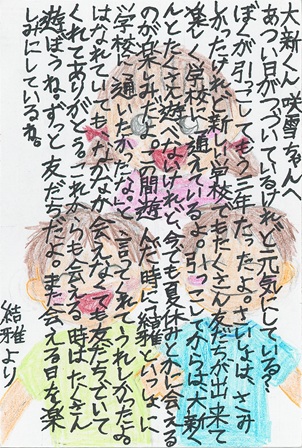 大新くん 咲雪ちゃんへ
あつい日がつづいているけれど元気にしている?
ぼくが引っこしてもう三年たったよ。さいしょは、さみ
しかったけれど新しい学校でもたくさん友だちが出来て
楽しく学校に通えているよ。引っこしてからは大新く
んとたくさん遊べないけれど、今でも夏休みとかに会える
のが楽しみだよ。この間遊んだ時に「結雅といっしょに
学校に通いたかったな。」と言ってくれてうれしかったよ。
はなれていてもなかなか会えなくても友だちでいて
くれてありがとう。これからも会える時はたくさん
遊ぼうね。ずっと友だちだよ。また会える日を楽
しみにしているね。
結雅より